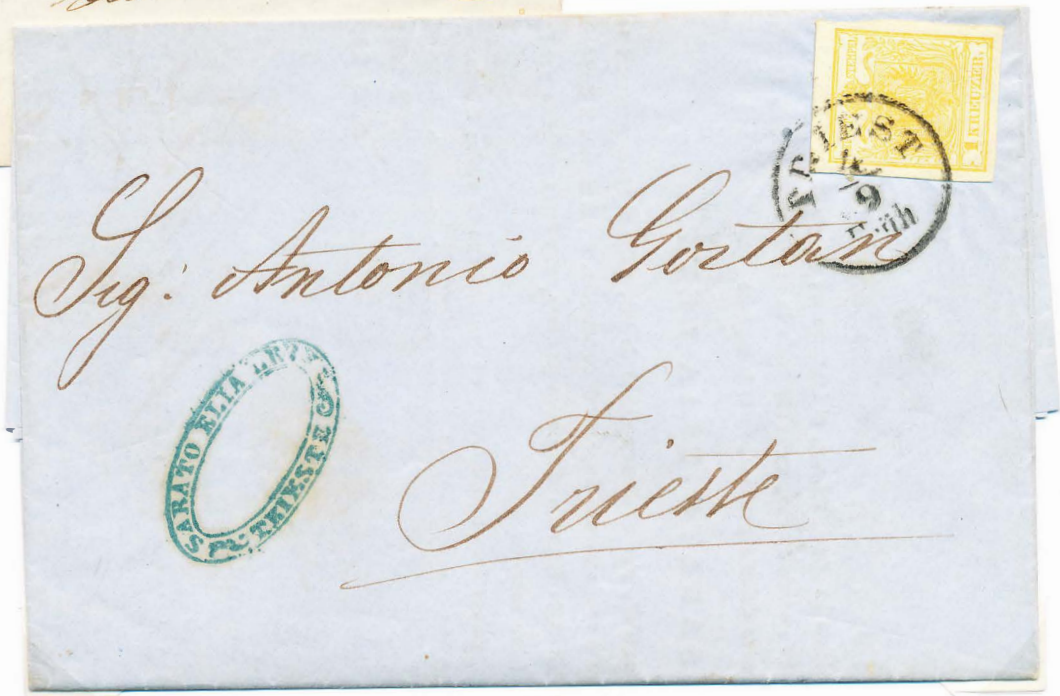 1 KREUZER.
TRIEST
9
Früh
Sig: Antonio Gortan
SABATO ELIA LEVI
TRIESTE
Trieste